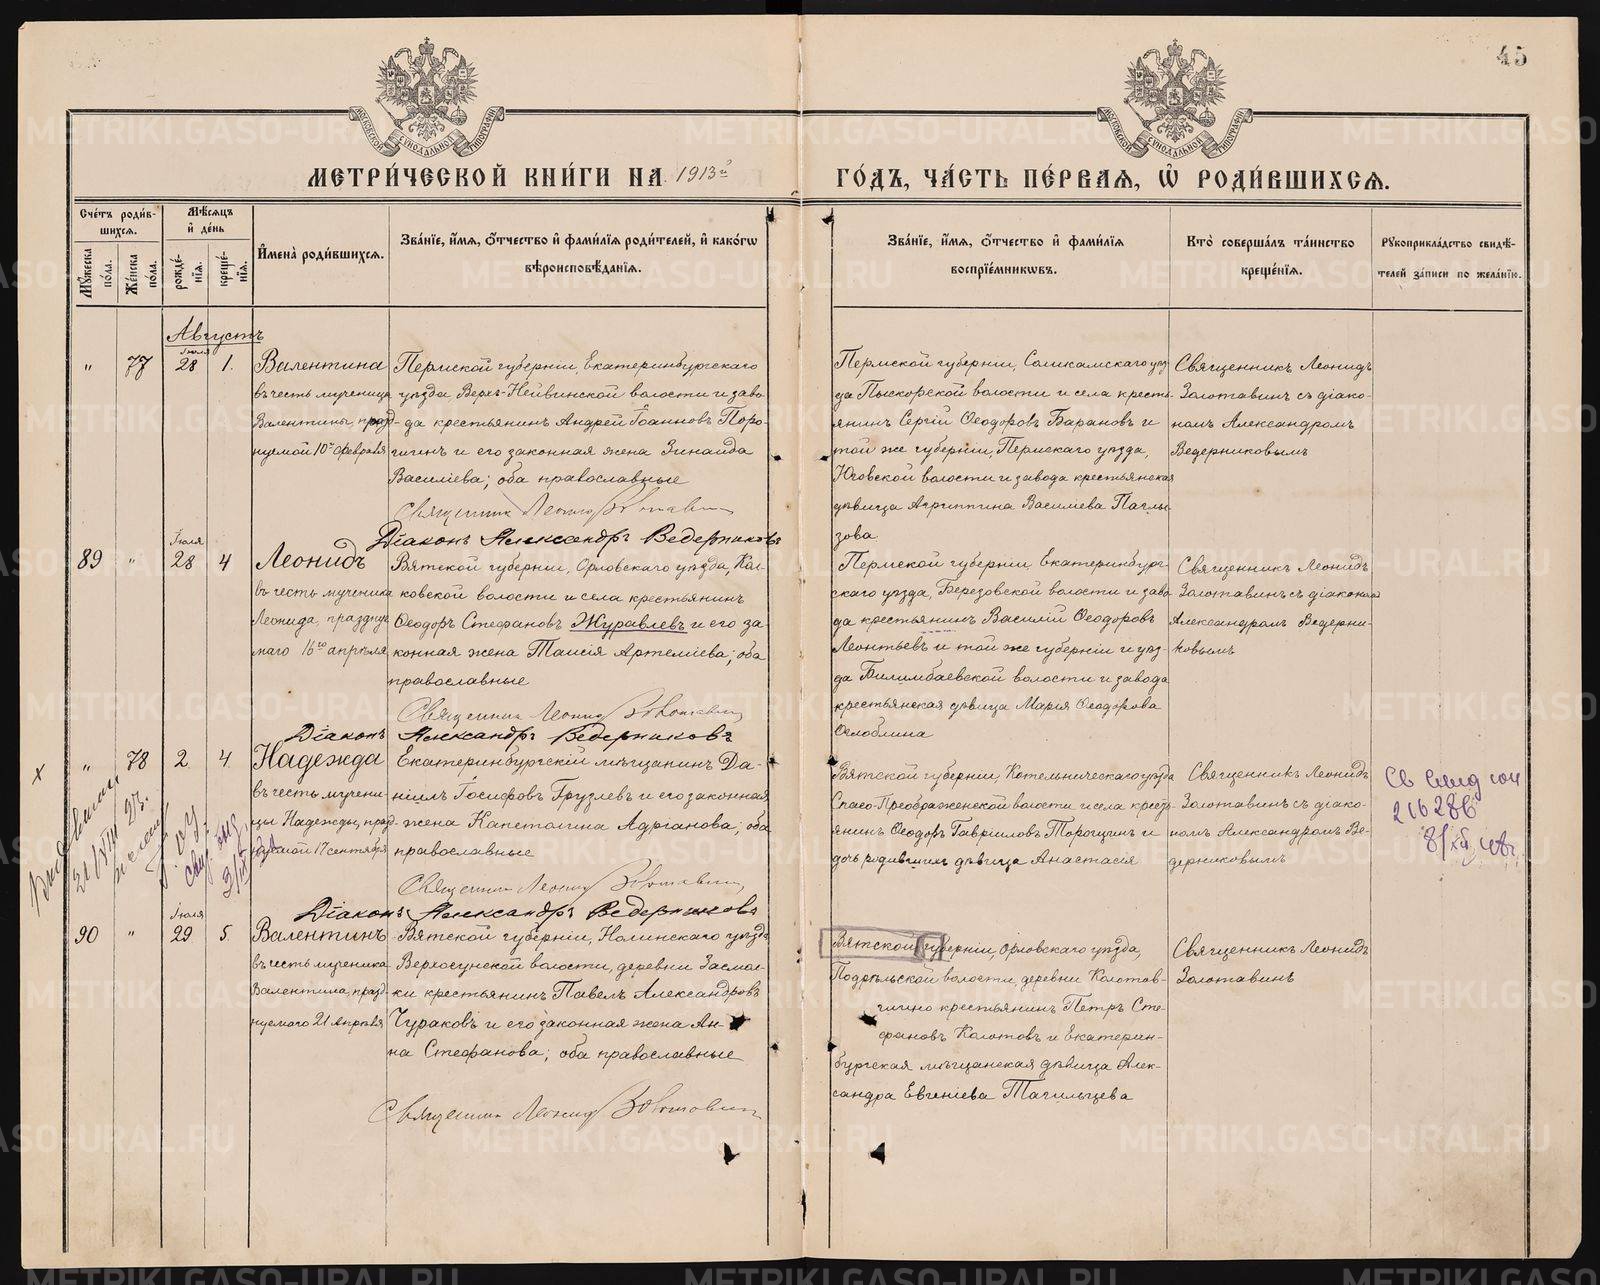 45
МОСКОВСКОЙ СѴНОДАЛЬНОЙ ТИПОГРАФІИ
МОСКОВСКОЙ СѴНОДАЛЬНОЙ ТИПОГРАФІИ
МЕТРИ́ЧЕСКОЙ КНИ́ГИ НА 1913й ГО́ДЪ, ЧА́СТЬ ПЕ́РВАЯ, Ѡ РОДИ́ВШИХСЯ.
Сче́тъ роди́в-
шихся.
Мꙋжеска по́ла.
Же́нска по́ла.
Мѣ́сяцъ
и́ де́нь
рожде́-
нїя.
креще́-
нїя.
И҆мена̀ роди́вшихся.
Зва́нїе, и҆́мя, ѻ҆́тчество и҆ фами́лїя роди́телей, и҆ како́гѡ
вѣроисповѣ́данїя.
Зва́нїе, и҆́мя, ѻ҆́тчество и҆ фами́лїя
воспрїе́мникѡвъ.
Кто̀ соверша́лъ та́инство
креще́нїя.
Рꙋкоприкла́дство свидѣ́-
телей за́писи по жела́нїю.
Августъ
" 77 Іюля 28 1.
Валентина
въ честь мученицы
Валентины, празд-
нуемой 10го февраля
Пермской губерніи, Екатеринбургскаго
уѣзда Верхъ-Нейвинской волости и заво-
да крестьянинъ Андрей Іоанновъ Поро-
гинъ и его законная жена Зинаида
Василіева; оба православные
Священник Леонид Золотавин
Діаконъ Александръ Ведерниковъ
Пермской губерніи, Соликамскаго уѣз-
да Пыскорской волости и села кресть-
янинъ Сергій Ѳеодоровъ Барановъ и
той же губерніи, Пермскаго уѣзда,
Юговской волости и завода крестьянская
дѣвица Агриппина Василіева Паглы-
зова
Священникъ Леонидъ
Золотавинъ съ діако-
номъ Александромъ
Ведерниковымъ
89 " Іюля 28 4
Леонидъ
въ честь мученика
Леонида, праздну-
маго 16го апрѣля
Вятской губерніи, Орловскаго уѣзда, Кол-
ковской волости и села крестьянинъ
Ѳеодоръ Стефановъ Журавлевъ и его за-
конная жена Таисія Артеміева; оба
православные
Священник Леонид Золотавин
Діаконъ Александръ Ведерниковъ
Пермской губерніи Екатеринбург-
скаго уѣзда, Березовской волости и заво-
да крестьянинъ Василій Ѳеодоровъ
Леонтьевъ и той же губерніи и уѣз-
да Билимбаевской волости и завода
крестьянская дѣвица Марія Ѳеодорова
Оглоблина
Священникъ Леонидъ
Золотавинъ съ діакономъ
Александромъ Ведерни-
ковымъ
х " 78 2 4
Надежда
въ честь мучени-
цы Надежды, празд-
нуемой 17 сентября
Екатеринбургскій мѣщанинъ Да-
ніилъ Іосифовъ Грузлевъ и его законная
жена Капетолина Адріанова; оба
православные
Священник Леонид Золотавин
Діаконъ Александръ Ведерниковъ
Вятской губерніи, Котельническаго уѣзда
Спасо-Преображенской волости и села крест-
янинъ Ѳеодоръ Гавріиловъ Торощинъ и
дочь родившихъ дѣвица Анастасія
Священникъ Леонидъ
Золотавинъ съ діако-
номъ Александромъ Ве-
дерниковымъ
216286
90 " Іюля 29 5
Валентинъ
въ честь мученика
Валентина, празд-
нуемаго 21 Апрѣля
Вятской губерніи, Нолинскаго уѣзда
Верхосунской волости, деревни Засмол-
ки крестьянинъ Павелъ Александровъ
Чураковъ и его законная жена Ан-
на Стефанова; оба православные
Священник Леонид Золотавин
Вятской губерніи, Орловскаго уѣзда,
Подрѣльской волости, деревни Колотов-
щино крестьянинъ Петръ Сте-
фановъ Колотовъ и Екатерин-
бургская мѣщанская дѣвица Алек-
сандра Евгеніева Тагильцева
Священникъ Леонидъ
Золотавинъ
METRIKI.GASO-URAL.RU